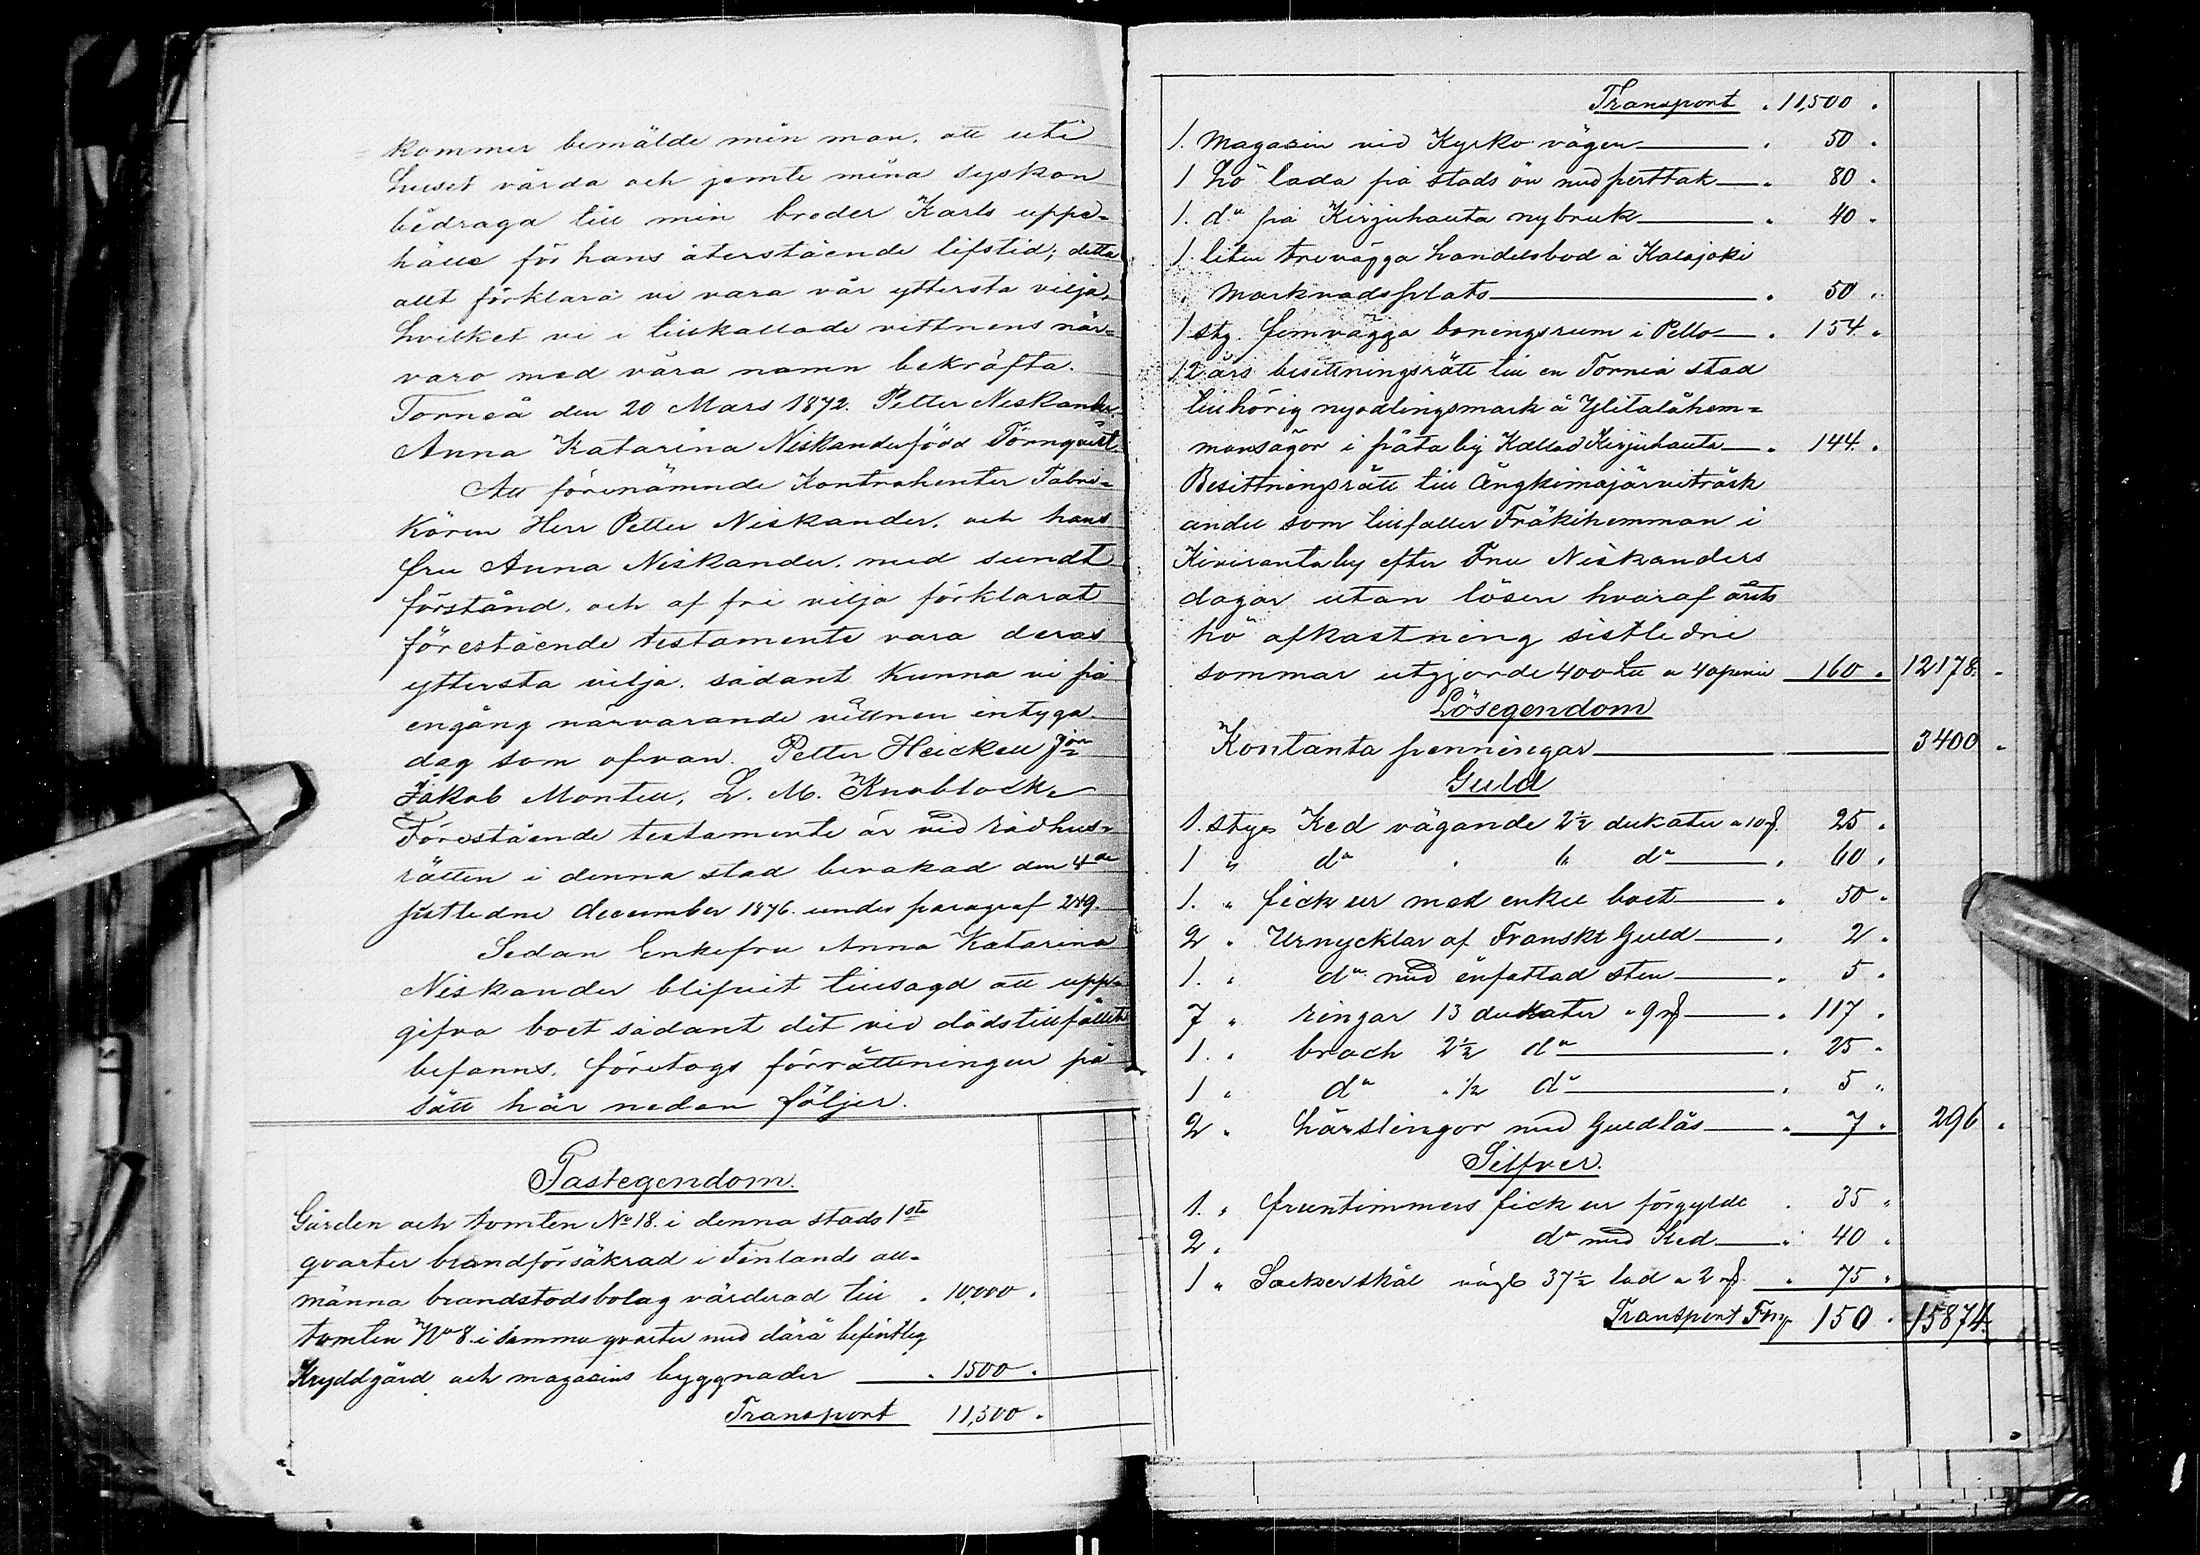 kommer bemälde min man, att uti
huset vårda och jemte mina syskon
bidraga till min broder Karls uppe-
hälle för hans återstående lifstid; detta
allt förklara vi vara vår yttersta vilja,
hvilket vi i tillkallade vittnens när-
varo med våra namn bekräfta.
Torneå den 20 Mars 1872. Petter Niskander.
Anna Katarina Niskander född Törnqvist.
Att förenämnde Kontrahenter Fabri-
kören Herr Petter Niskander, och hans
fru Anna Niskander, med sundt
förstånd, och af fri vilja förklarat
förestående testamente vara deras
yttersta vilja, sådant kunna vi på
engång närvarande vittnen intyga.
dag som ofvan. Petter Heickell Jon
Jakob Montell, L. M. Knoblock.
Förestående testamente är vid rådhus-
rätten i denna stad bevakad den 4de
sistledne december 1876. under paragraf 249.
Sedan Enkefru Anna Katarina
Niskander blifvit tillsagd att upp-
gifva boet sådant det vid dödstillfället
befanns, företogs förrättningen på
sätt här nedan följer.
Fastegendom.
Gården och tomten No 18. i denna stads 1sta
qvarter brandförsäkrad i Finlands all-
männa brandstodsbolag värderad till " 10,000 "
tomten No 8 i samma qvarter med därå befintlig
Kryddgård och magasins byggnader " 1500 "
Transport 11,500 "
Transport " 11,500 "
1. Magasin vid Kyrko vägen " 50 "
1 hö lada på stads ön med perttak " 80 "
1. do på Kirjuhauta nybruk " 40 "
1. liten trevägga handelsbod å Kalajoki
" Marknadsplats " 50 "
1 stg. femvägga boningsrum i Pello " 154 "
12 års besittningsrätt till en Torneå stad
tillhörig nyodlingsmark å Ylitalåhem-
mansägor i Präta by Kallad Kirjuhauta " 144 "
Besittningsrätt till Ängkimajärviträsk
andel som tillfaller Fräkihemman i
Kiviranta by efter Fru Niskanders
dagar utan lösen hvaraf årets
hö afkastning sistledne
sommar utgjorde 400 Lu a 40 penni 160 " 12178 "
Lösegendom
Kontanta penningar 3400 "
Guld
1. styc Ked vägande 2½ dukater a 10 mf 25 "
1 " do " 6 do " 60 "
1. " fick ur med enkel boet " 50 "
2 " Urnycklar af Franskt Guld " 2 "
1. " do med enfattad sten " 5 "
7 " ringar 13 dukater a 9 mf " 117 "
1. " broch 2½ do " 25 "
1 " do " ½ do " 5 "
2 " hårslingor med Guldlås " 7 " 296 "
Silfver.
1. " fruntimmers fick ur förgylde " 35 "
2. do med Ked " 40 "
1 " Sockerskål vägt 37½ lod a 2 mf " 75 "
Transport Fmg 150 " 15874 "